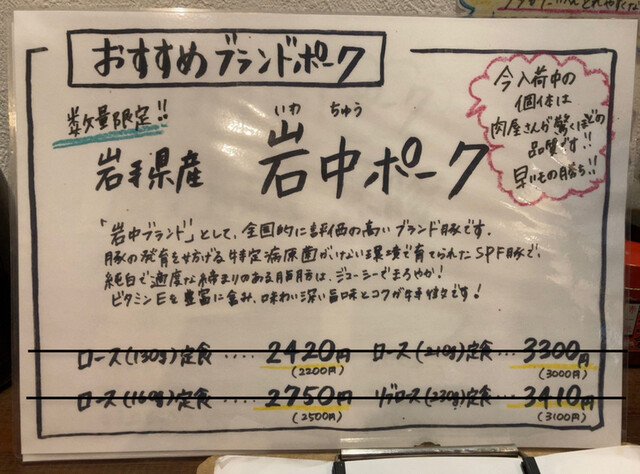 おすすめブランドポーク
数量限定!!
いわ ちゅう
岩手県産 岩中ポーク
今入荷中の
個体は
肉屋さんが驚くほどの
品質です!!
早いもの勝ち!!
「岩中ブランド」として、全国的に評価の高いブランド豚です。
豚の発育を妨げる特定病原菌がいない環境で育てられたSPF豚で、
純白で適度な締まりのある脂肪は、ジューシーでまろやか!
ビタミンEを豊富に含み、味わい深い旨味とコクが特徴です!
ロース(130g)定食････2420円 ロース(210g)定食･･･3300円
(2200円) (3000円)
ロース(160g)定食････2750円 リブロース(230g)定食･･･3410円
(2500円) (3100円)